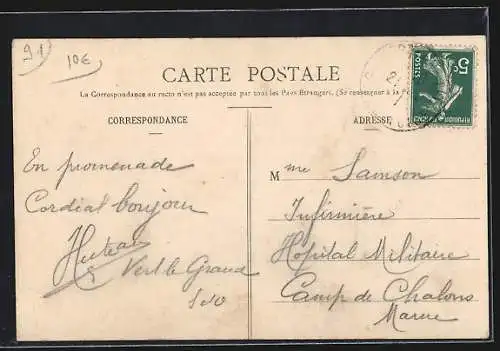 91
10€
CARTE POSTALE
La Correspondance au recto n'est pas acceptée par tous les Pays Étrangers. (Se renseigner à la
CORRESPONDANCE
ADRESSE
5c
POSTES
RÉPUBLIQUE
En promenade
Cordial bonjour
Vert le Grand
S&O
Mme Samson
Infirmière
Hôpital Militaire
Camp de Chalons
Marne